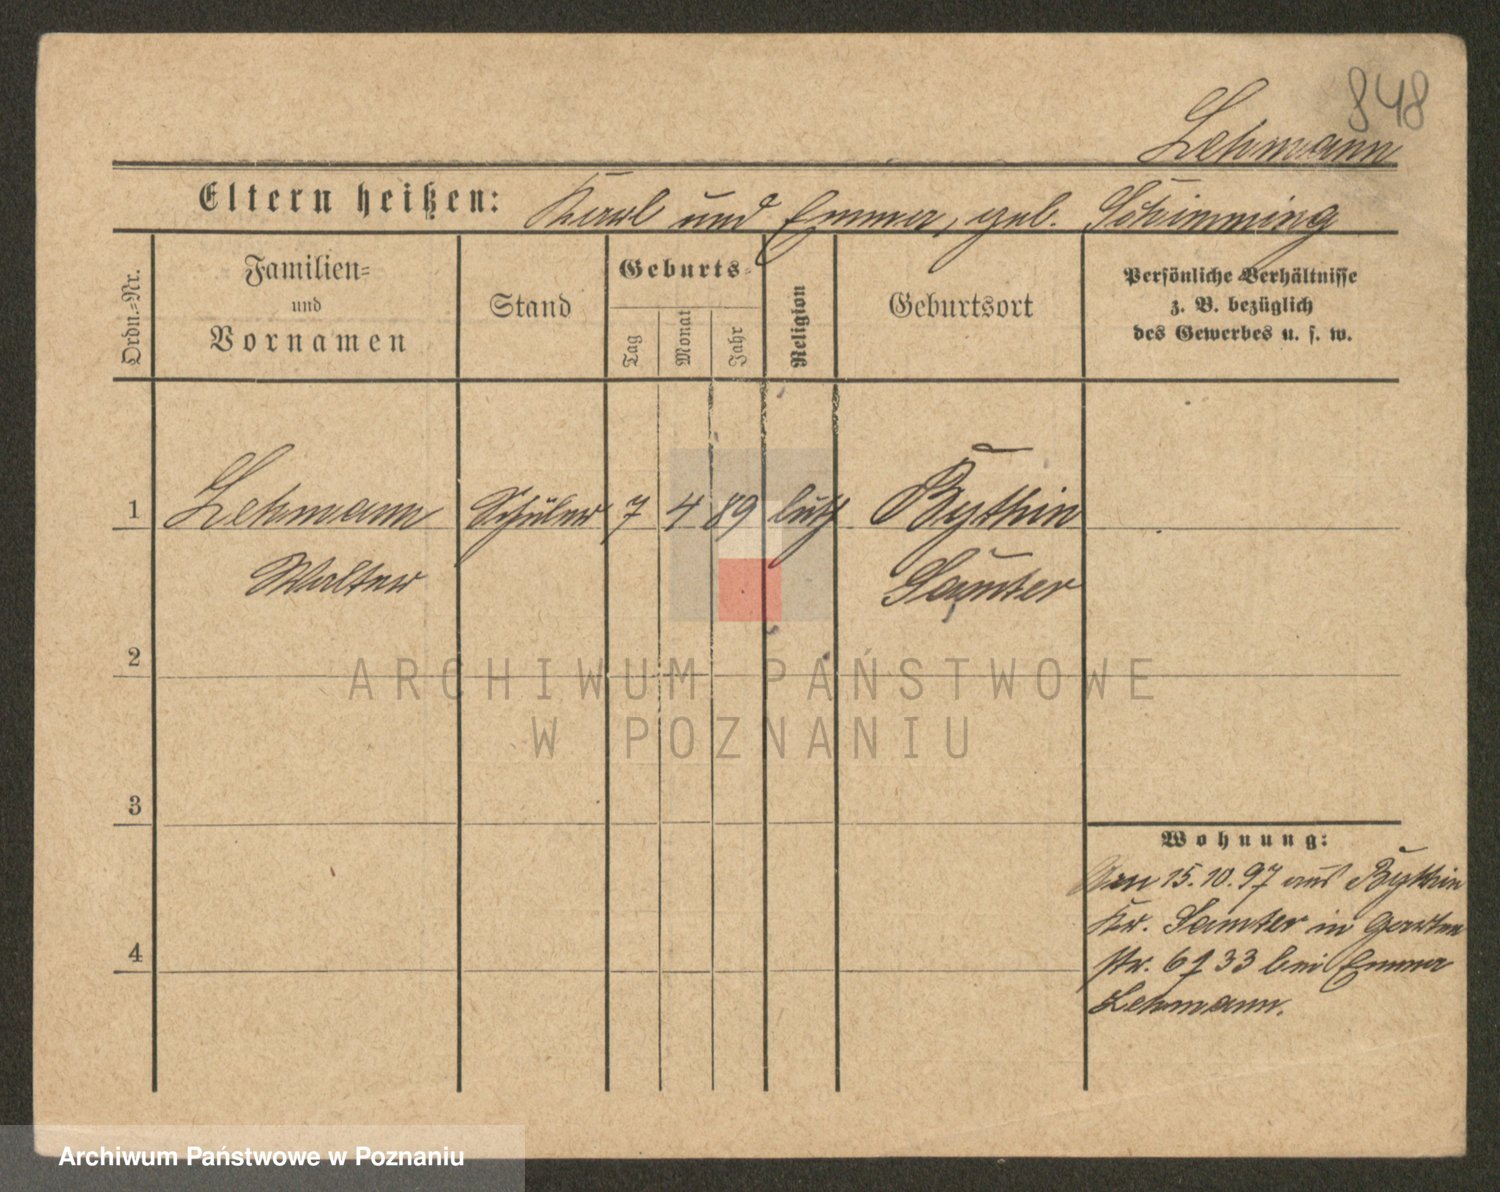 848
Lehmann
Eltern heißen: Karl und Emma, geb. Schimming
Ordn.-Nr.
Familien-
und
Vornamen
Stand
Geburts-
Tag
Monat
Jahr
Religion
Geburtsort
Persönliche Verhältnisse
z. B. bezüglich
des Gewerbes u. s. w.
1 Lehmann Schüler 7 4 89 luth Bythin
Walter Samter
2
ARCHIWUM PAŃSTWOWE
W POZNANIU
3
Wohnung:
15.10.97 aus Bythin
Kr. Samter in Garten
str. 33 bei Emma
Lehmann.
4
Archiwum Państwowe w Poznaniu